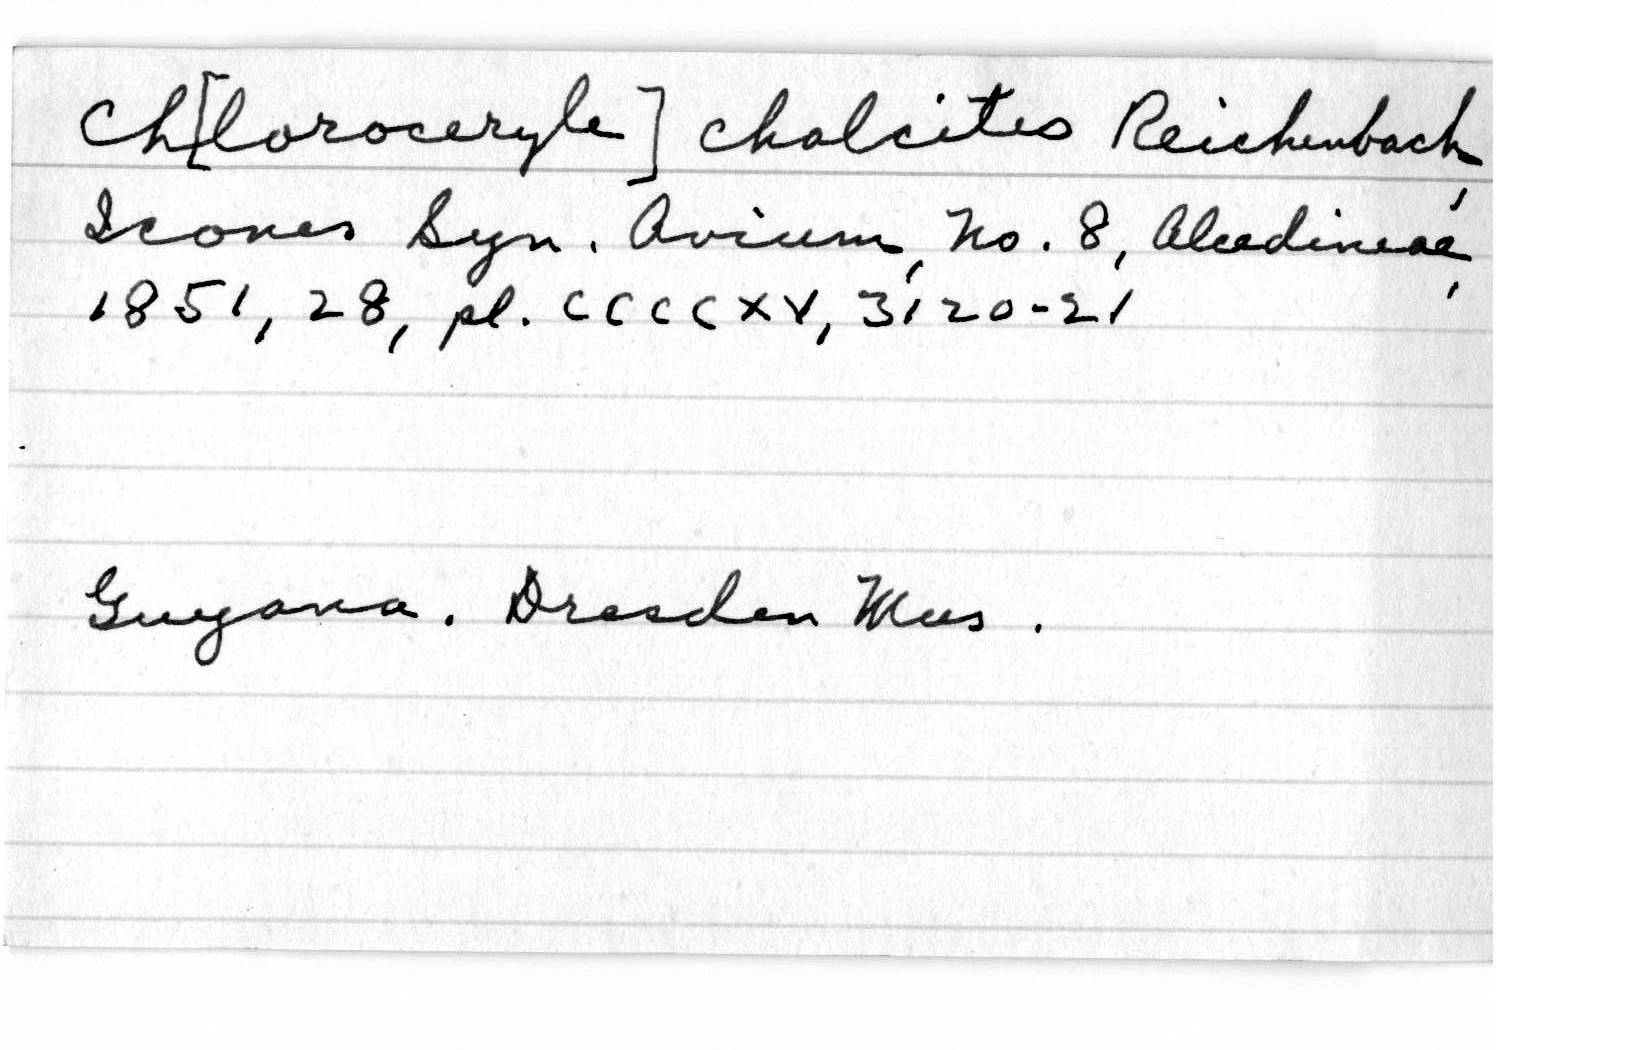 Ch[loroceryle] chalcites Reichenbach,
Icones Syn. Avium, No. 8, Alcedineae,
1851, 28, pl. CCCCXV, 3120-21
Guyana. Dresden Mus.